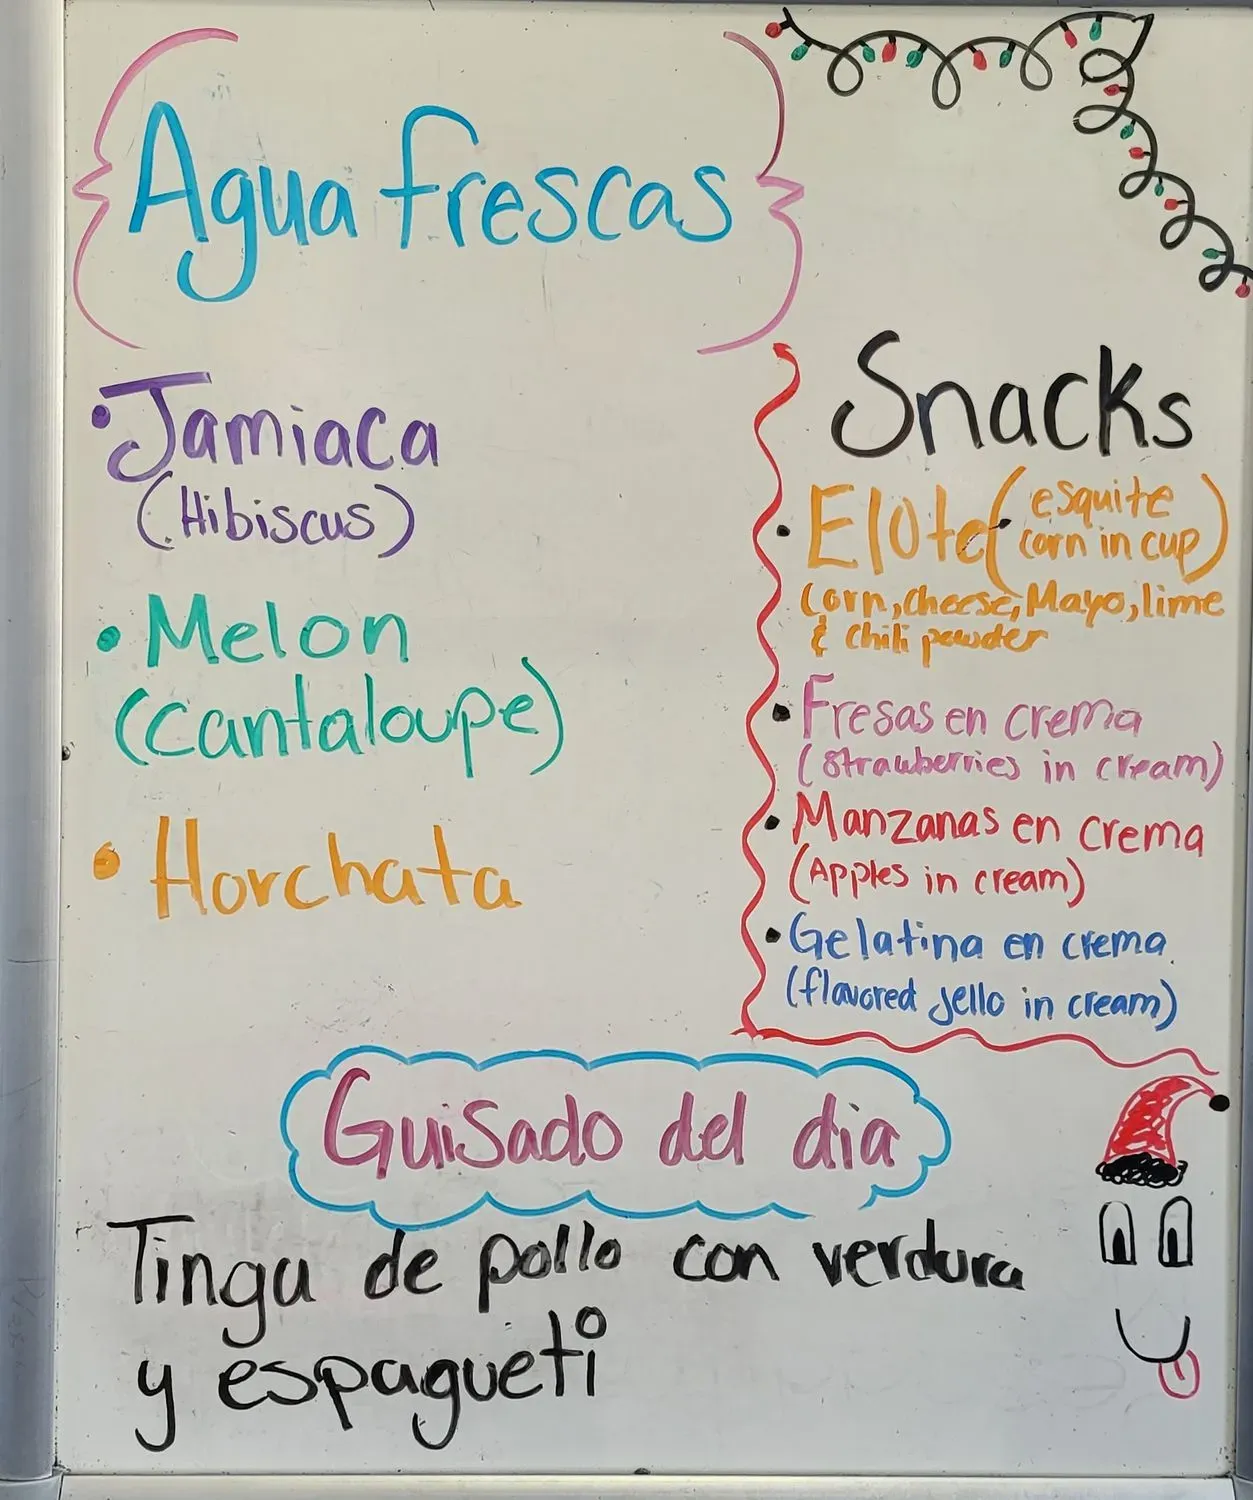 Agua frescas
• Jamiaca
(Hibiscus)
• Melon
(cantaloupe)
• Horchata
Snacks
• Elote (esquite
corn in cup)
Corn, cheese, Mayo, lime
& Chili powder
• Fresas en crema
(strawberries in cream)
• Manzanas en crema
(Apples in cream)
• Gelatina en crema
(flavored jello in cream)
Guisado del dia
Tinga de pollo con verdura
y espagueti